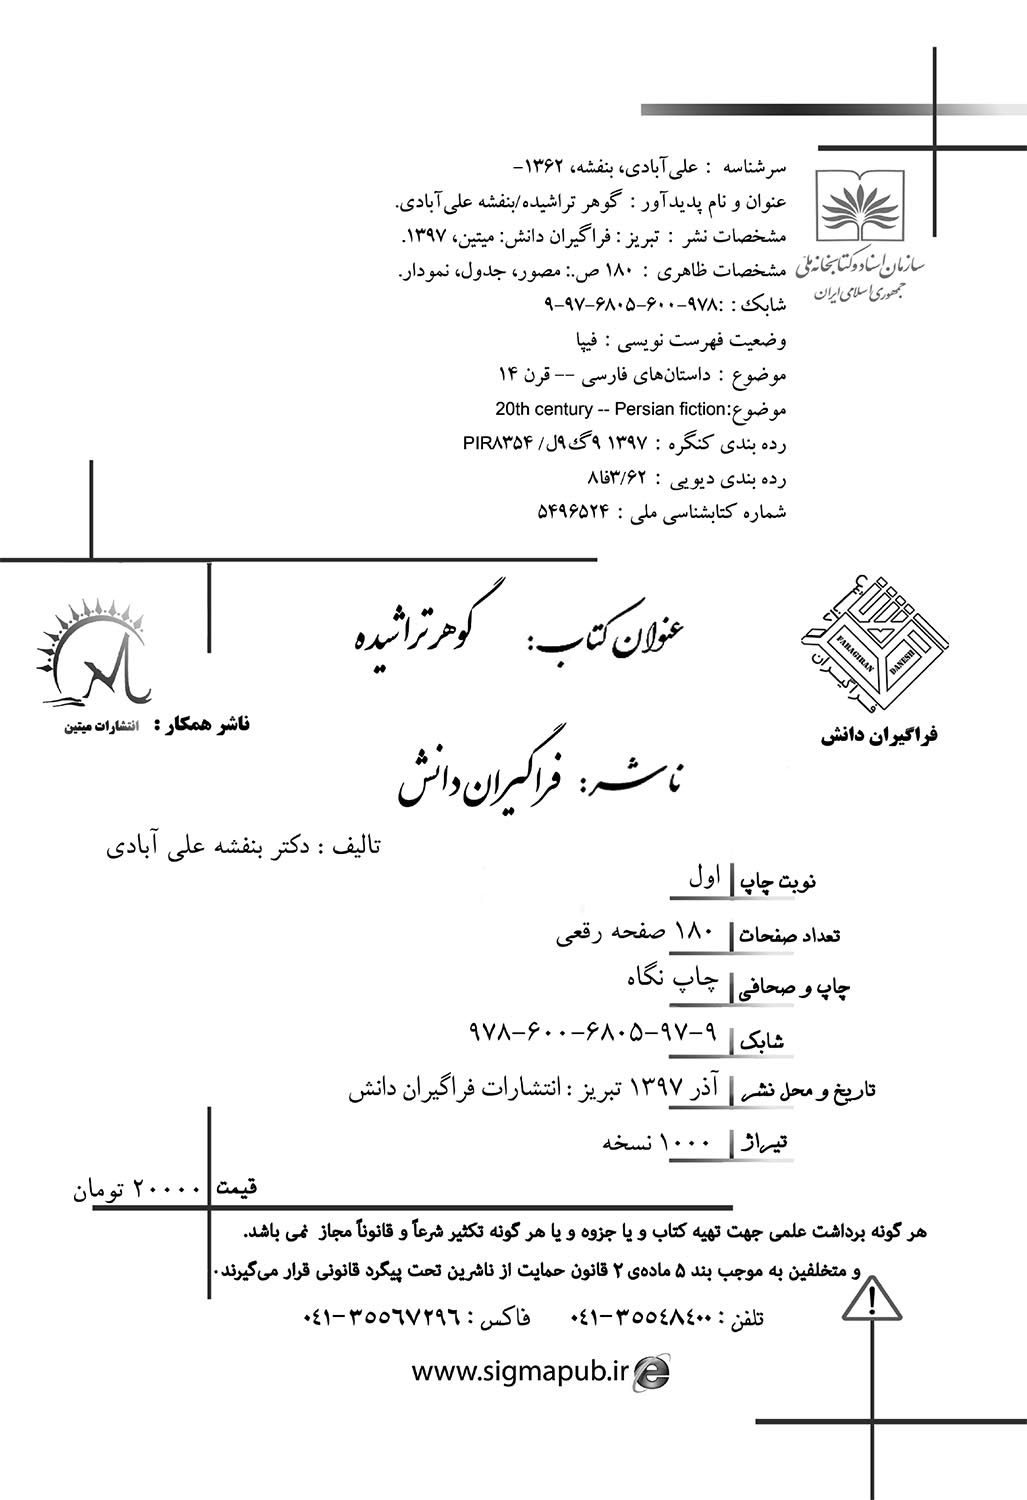 سرشناسه : علی‌آبادی، بنفشه، ۱۳۶۲-
عنوان و نام پدیدآور : گوهر تراشیده/بنفشه علی‌آبادی.
مشخصات نشر : تبریز : فراگیران دانش: میتین، ۱۳۹۷.
مشخصات ظاهری : ۱۸۰ ص.: مصور، جدول، نمودار.
شابک : :۹۷۸-۶۰۰-۶۸۰۵-۹۷-۹
وضعیت فهرست نویسی : فیپا
موضوع : داستان‌های فارسی -- قرن ۱۴
موضوع:20th century -- Persian fiction
رده بندی کنگره : ۱۳۹۷ ۹گ۹ل/ PIR۸۳۵۴
رده بندی دیویی : ۳/۶۲فا۸
شماره کتابشناسی ملی : ۵۴۹۶۵۲۴
سازمان اسناد و کتابخانه ملی
جمهوری اسلامی ایران
عنوان کتاب: گوهر تراشیده
FARAGIRAN DANESH
فراگیران
فراگیران دانش
ناشر همکار : انتشارات میتین
ناشر: فراگیران دانش
تالیف : دکتر بنفشه علی آبادی
نوبت چاپ اول
تعداد صفحات ۱۸۰ صفحه رقعی
چاپ و صحافی چاپ نگاه
شابک ۹۷۸-۶۰۰-۶۸۰۵-۹۷-۹
تاریخ و محل نشر آذر ۱۳۹۷ تبریز : انتشارات فراگیران دانش
تیراژ ۱۰۰۰ نسخه
قیمت ۲۰۰۰۰ تومان
هر گونه برداشت علمی جهت تهیه کتاب و یا جزوه و یا هر گونه تکثیر شرعاً و قانوناً مجاز نمی باشد.
و متخلفین به موجب بند ۵ ماده‌ی ۲ قانون حمایت از ناشرین تحت پیگرد قانونی قرار می‌گیرند.
تلفن : ۰۴۱-۳۵۵۴۸۴۰۰ فاکس : ۰۴۱-۳۵۵۶۷۲۹۶
www.sigmapub.ir